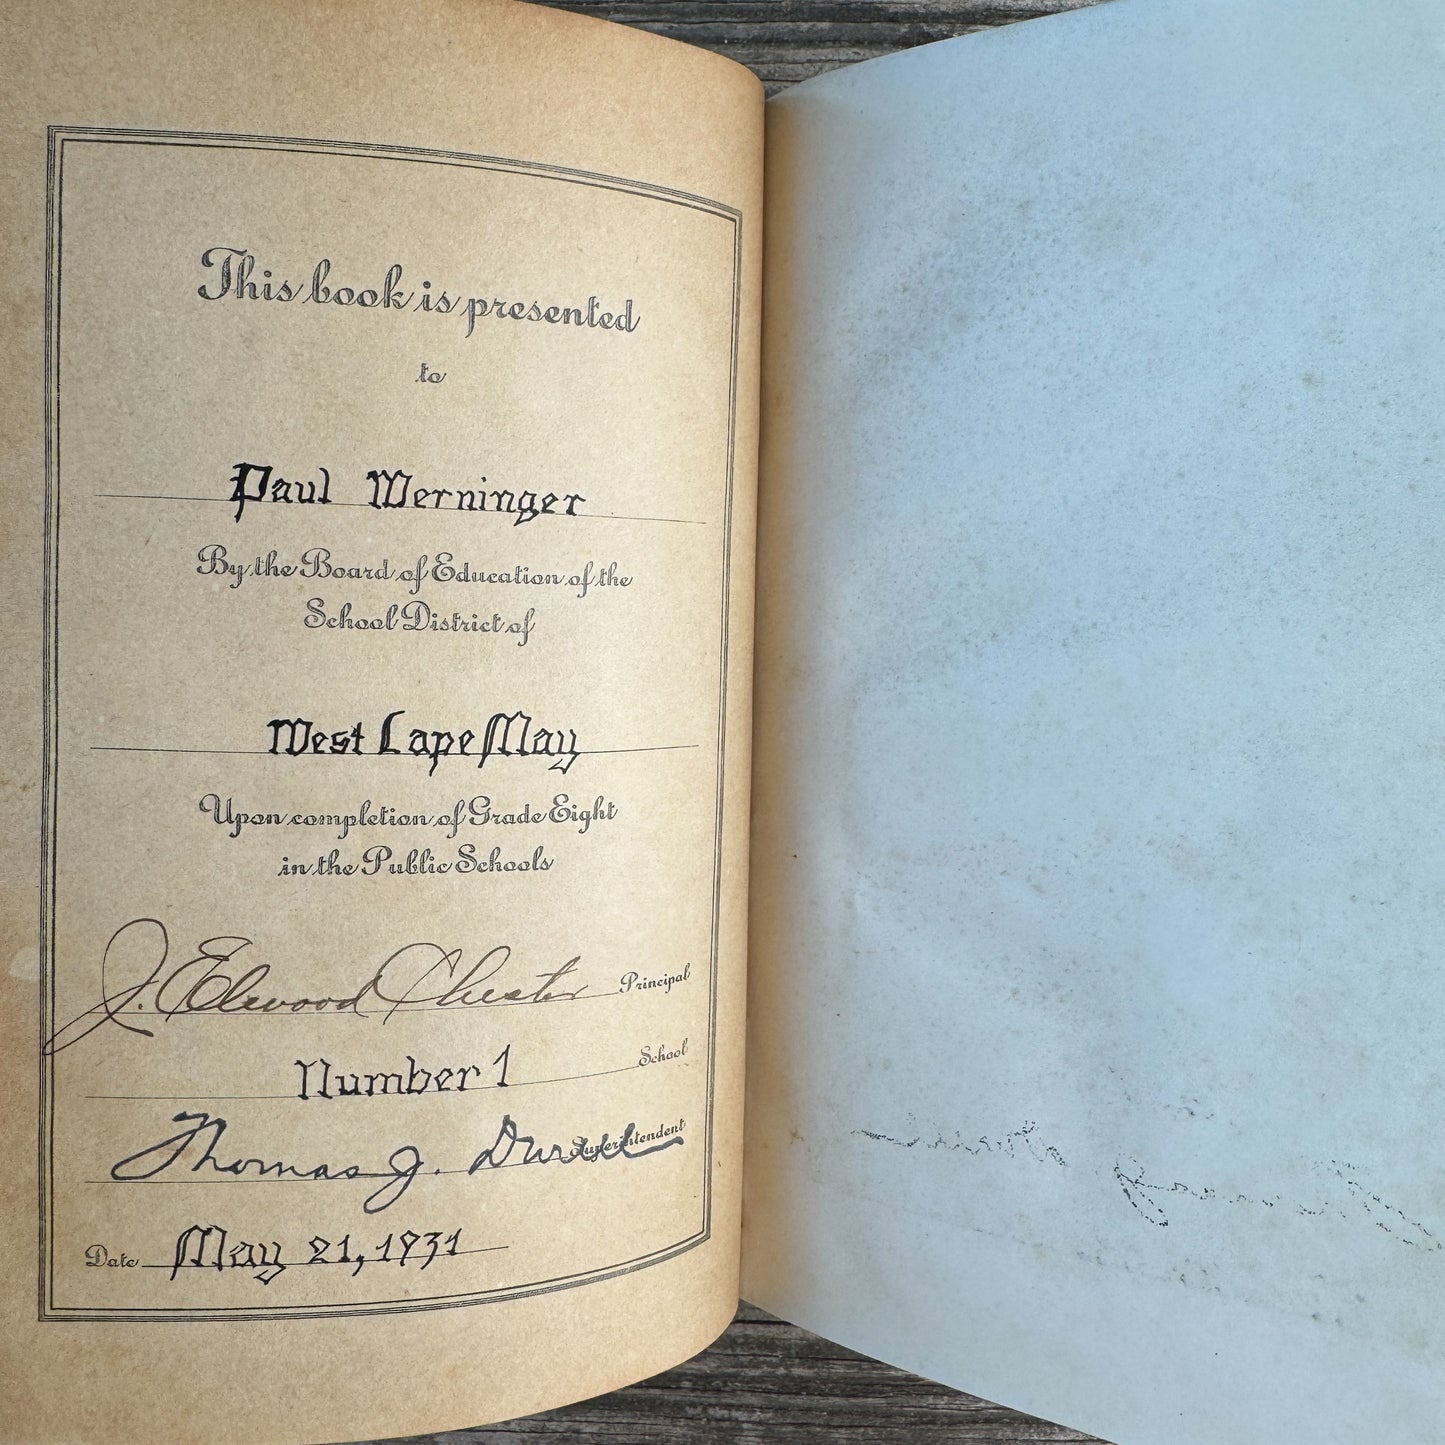 This book is presented
to
Paul Werninger
By the Board of Education of the
School District of
West Cape May
Upon completion of Grade Eight
in the Public Schools
J. Elwood Chester Principal
Number 1 School
Thomas J. Durell Superintendent
Date May 21, 1931